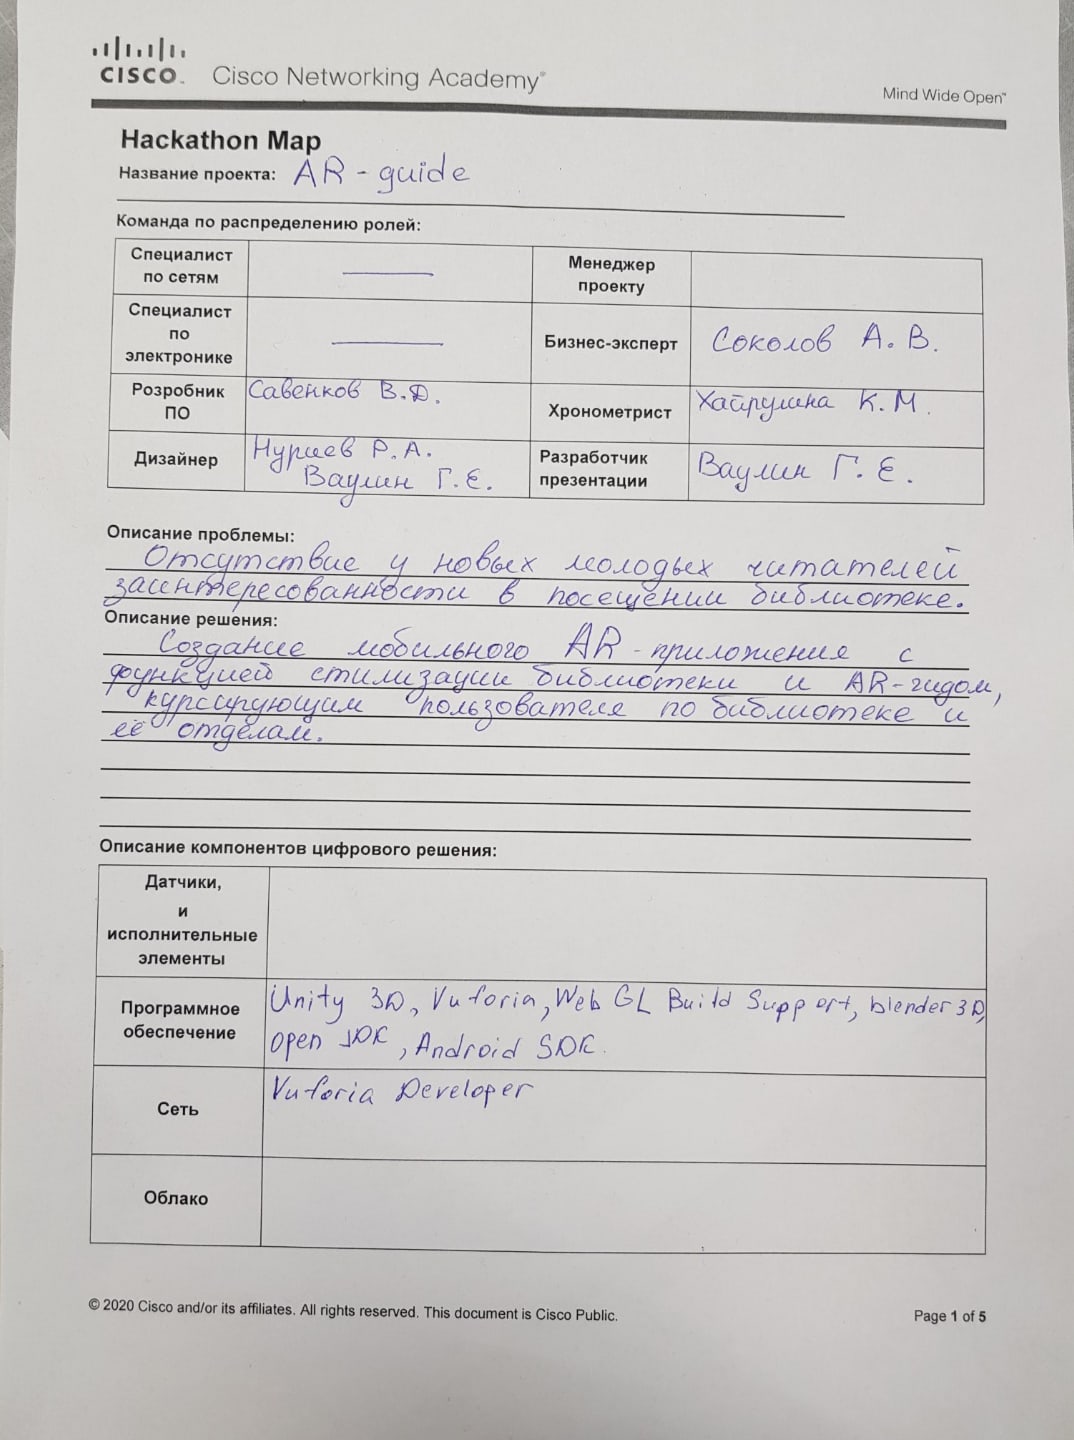 CISCO Cisco Networking Academy®
Mind Wide Open™
Hackathon Map
Название проекта: AR - guide
Команда по распределению ролей:
Специалист
по сетям
Менеджер
проекту
Специалист
по
электронике
Бизнес-эксперт
Соколов А. В.
Розробник
ПО
Савенков В.Д.
Хронометрист
Хайрулина К.М.
Дизайнер
Нуриев Р.А.
Ваулин Г.Е.
Разработчик
презентации
Ваулин Г.Е.
Описание проблемы:
Отсутствие у новых молодых читателей
заинтересованности в посещении библиотеке.
Описание решения:
Создание мобильного AR - приложения с
функцией стилизации библиотеки и AR-гидом,
курсирующим пользователя по библиотеке и
её отделам.
Описание компонентов цифрового решения:
Датчики,
и
исполнительные
элементы
Программное
обеспечение
Unity 3D, Vuforia, Web GL Build Support, blender 3D,
open JDK, Android SDK.
Сеть
Vuforia Developer
Облако
© 2020 Cisco and/or its affiliates. All rights reserved. This document is Cisco Public.
Page 1 of 5